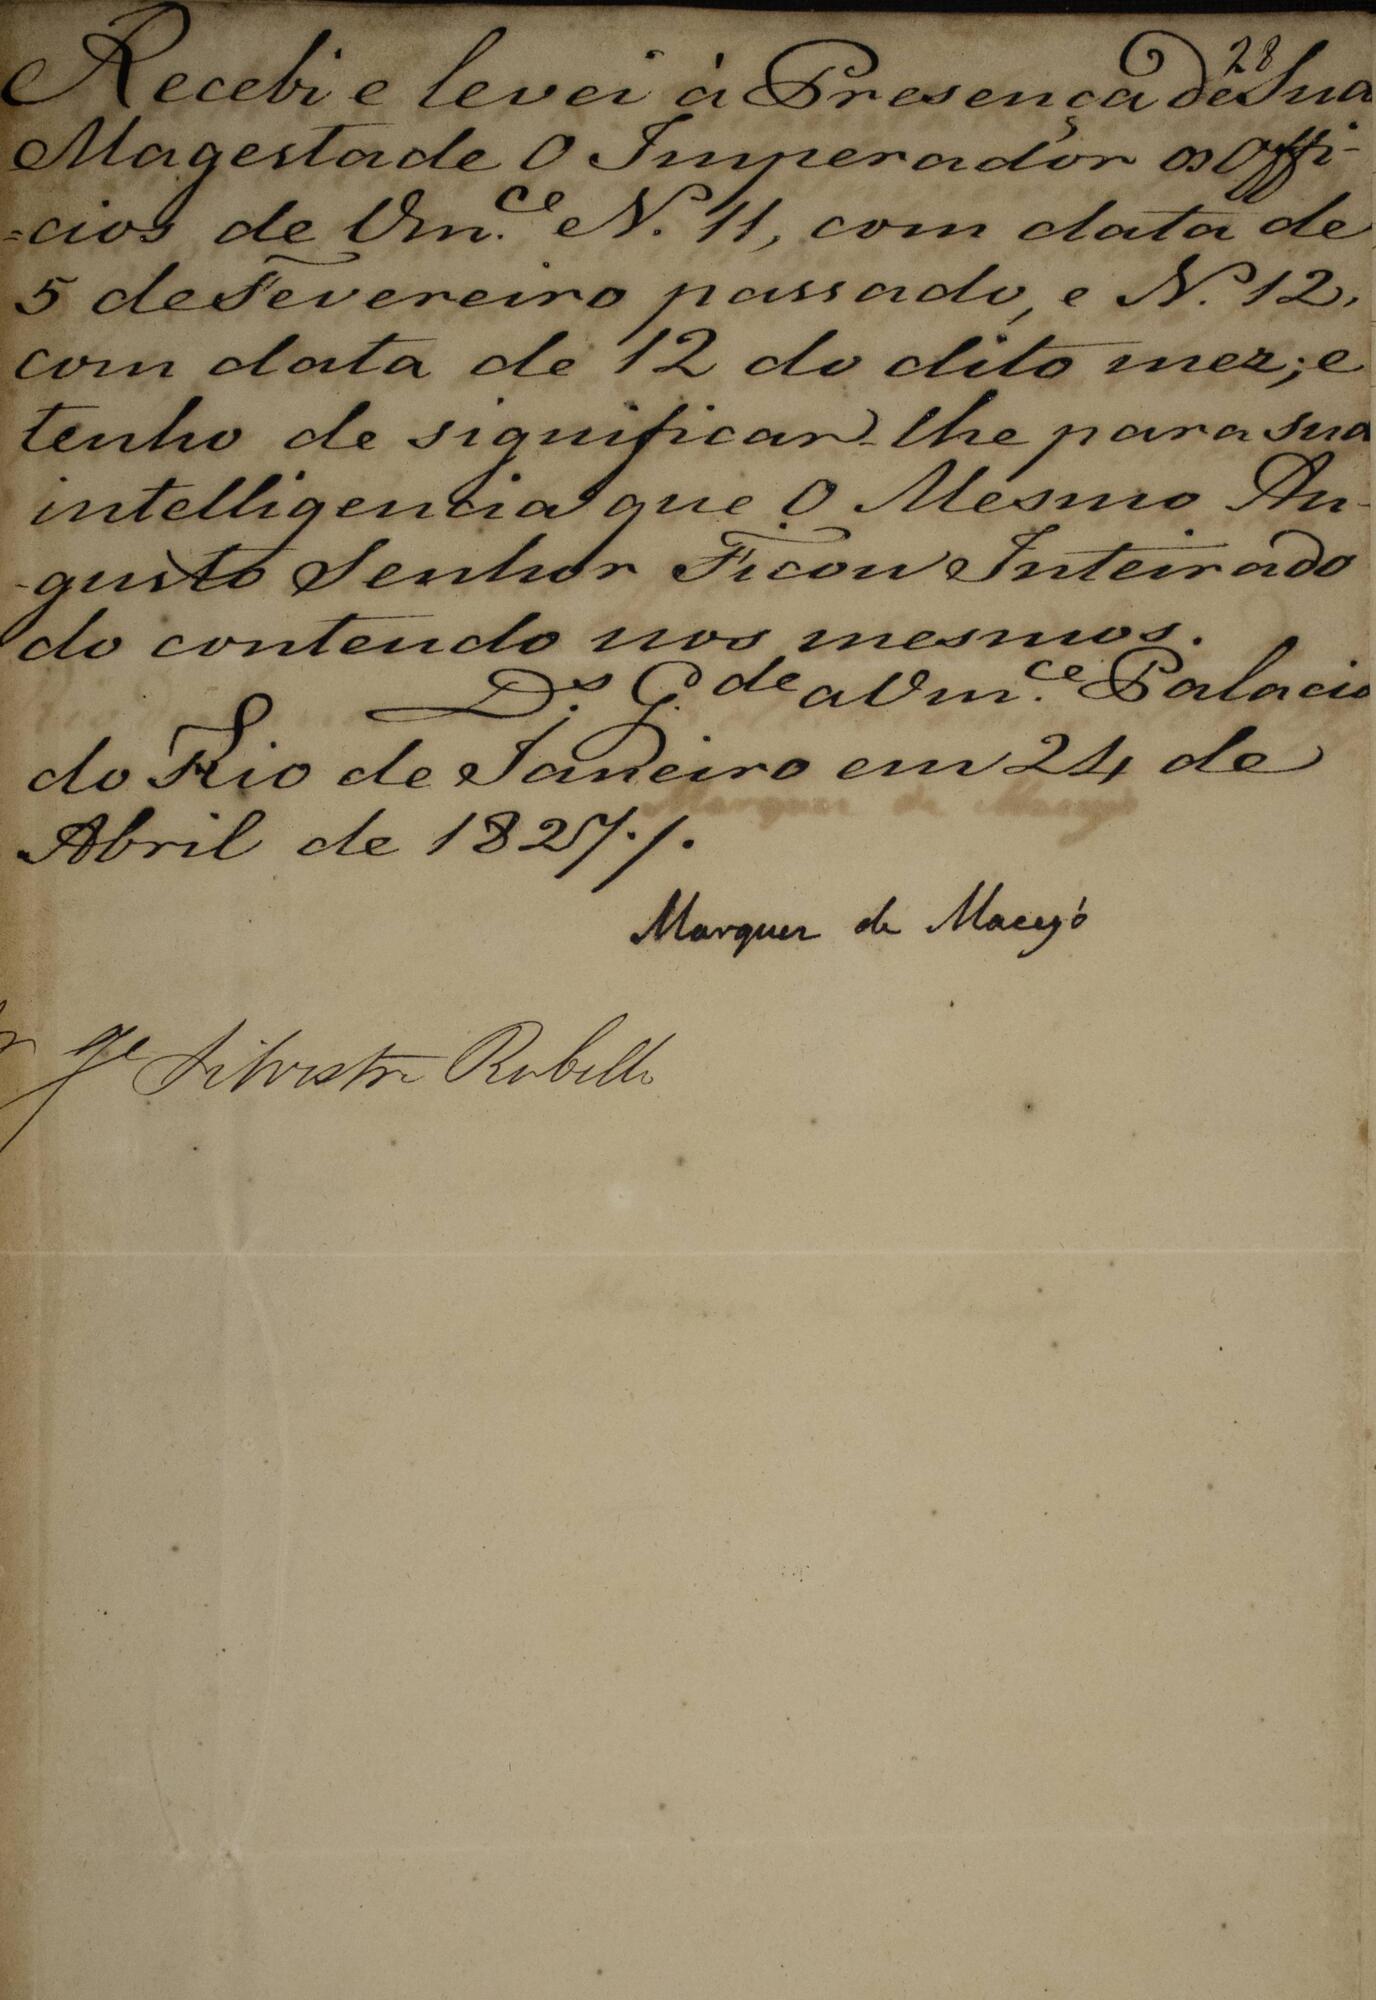 28
Recebi e levei á Presença de Sua
Magestade O Imperador os Offi-
=cios de Vm.ce N.º 11, com data de
5 de Fevereiro passado, e N.º 12,
com data de 12 do dito mez; e
tenho de significar-lhe para sua
intelligencia que O Mesmo Au-
-gusto Senhor Ficou Inteirado
do contendo nos mesmos.
D.s G.de a Vm.ce Palacio
do Rio de Janeiro em 24 de
Abril de 1827./.
Marquez de Maceyó
Je Silvestre Rebello